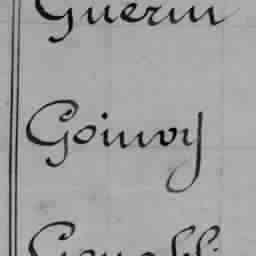 Guerin
Goinvy